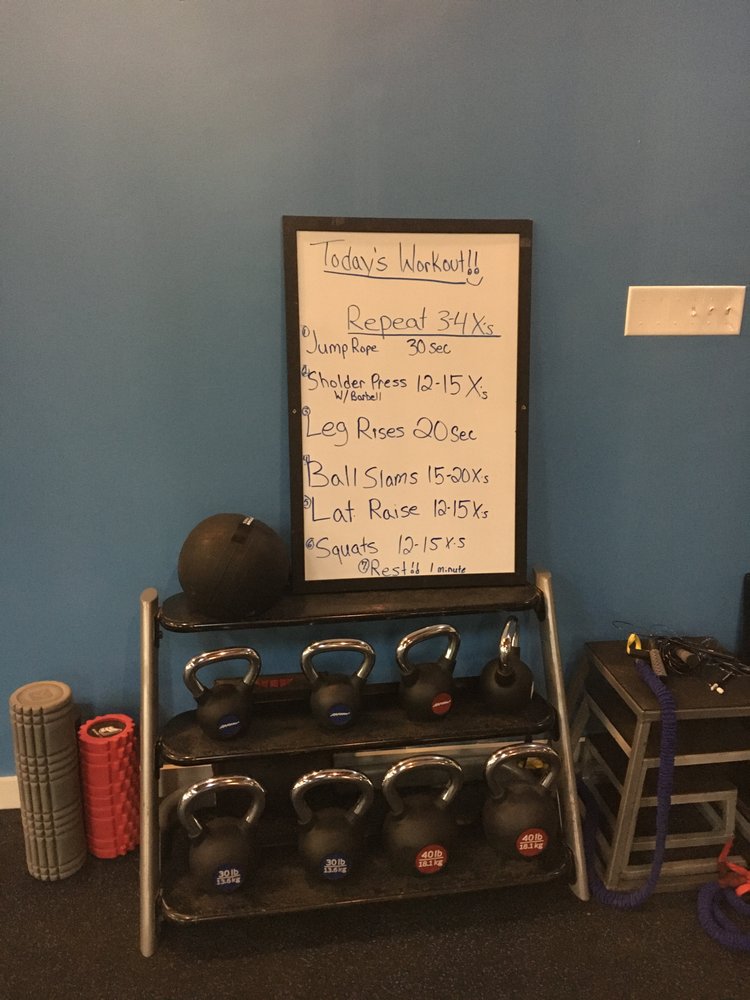 Today's Workout!!
Repeat 3-4X's
① Jump Rope 30 Sec
② Sholder Press 12-15 X's
W/ Barbell
③ Leg Rises 20 Sec
④ Ball Slams 15-20X's
⑤ Lat Raise 12-15 X's
⑥ Squats 12-15 X's
⑦ Rest!! 1 minute
30 lb
13.6 kg
30 lb
13.6 kg
40 lb
18.1 kg
40 lb
18.1 kg